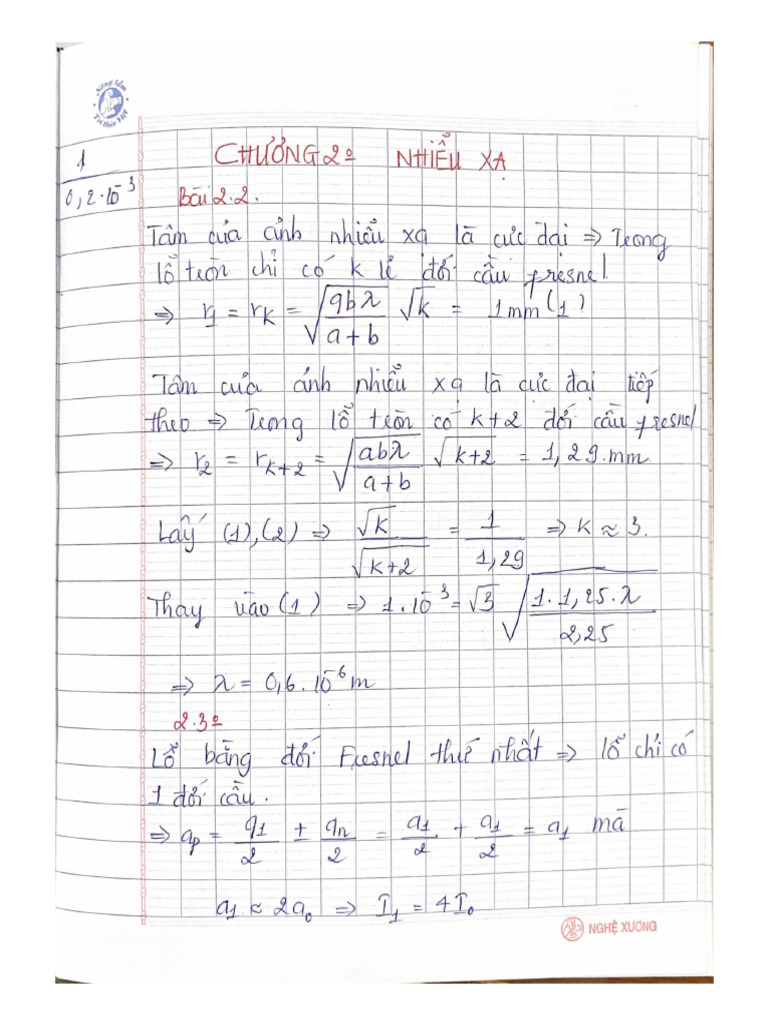 Nâng tầm
Tri thức Việt
1
0,2.10⁻³
CHƯƠNG 2: NHIỄU XẠ
Bài 2.2.
Tâm của ảnh nhiễu xạ là cực đại => Trong
lỗ tròn chỉ có k lẻ đới cầu fresnel
=> r₁ = r_K = √(abλ/(a+b)) √k = 1mm (1)
Tâm của ảnh nhiễu xạ là cực đại tiếp
theo => Trong lỗ tròn có k+2 đới cầu fresnel
=> r₂ = r_{k+2} = √(abλ/(a+b)) √(k+2) = 1,29.mm
Lấy (1),(2) => √K/√(K+2) = 1/1,29 => K ≈ 3.
Thay vào (1) => 1.10⁻³ = √3 √(1.1,25.λ/2,25)
=> λ = 0,6.10⁻⁶ m
2.3:
Lỗ bằng đới Fresnel thứ nhất => lỗ chỉ có
1 đới cầu.
=> a_p = a₁/2 ± a_n/2 = a₁/2 + a₁/2 = a₁ mà
a₁ ≈ 2a₀ => I₁ = 4I₀
NGHỆ XƯƠNG